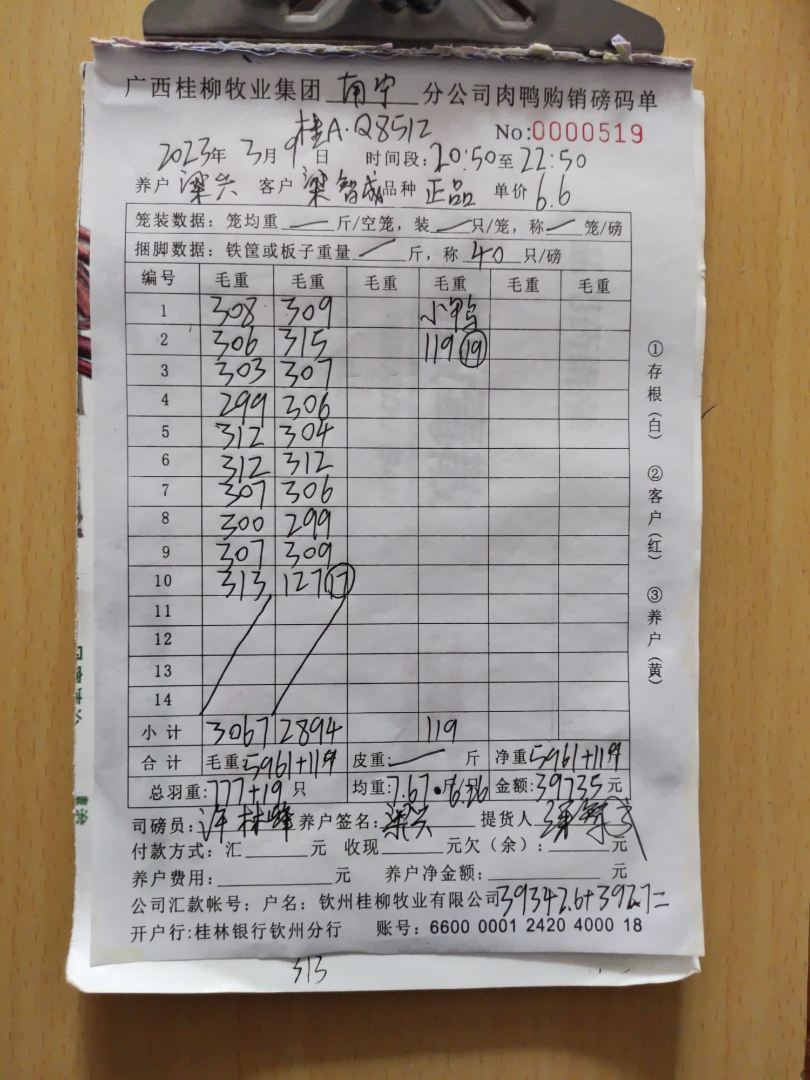 广西桂柳牧业集团 南宁 分公司肉鸭购销磅码单
桂A·Q8512 No:0000519
2023年 3月 9日 时间段:20:50至22:50
养户 梁兴 客户 梁智成 品种 正品 单价 6.6
笼装数据: 笼均重 — 斤/空笼, 装 — 只/笼, 称 — 笼/磅
捆脚数据: 铁筐或板子重量 — 斤, 称 40 只/磅
编号 毛重 毛重 毛重 毛重 毛重 毛重
1 308 309 小鸭
2 306 315 119 19
3 303 307
4 299 306
5 312 304
6 312 312
7 307 306
8 300 299
9 307 309
10 313 127 17
11
12
13
14
小计 3067 2894 119
合计 毛重:5961+119 皮重: — 斤 净重5961+119
总羽重:777+19 只 均重:7.67 · 6.26 金额:39735元
司磅员: 许林峰 养户签名: 梁兴 提货人
付款方式: 汇 元 收现 元欠(余): 元
养户费用: 元 养户净金额: 元
公司汇款帐号: 户名: 钦州桂柳牧业有限公司 39342.6+392.7=
开户行:桂林银行钦州分行 账号: 6600 0001 2420 4000 18
①存根(白) ②客户(红) ③养户(黄)
313